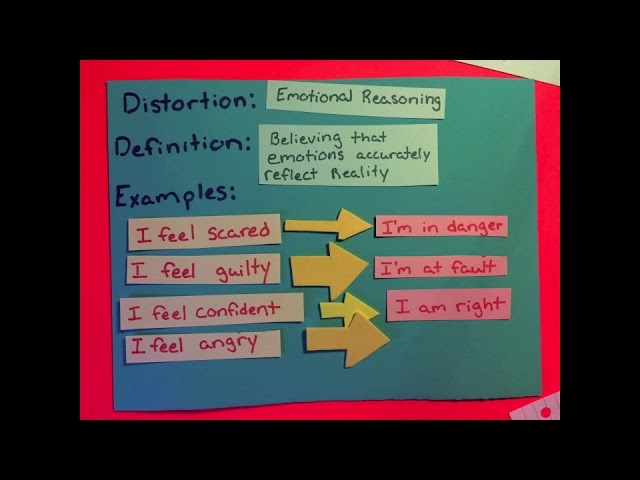 Distortion: Emotional Reasoning
Definition: Believing that
emotions accurately
reflect Reality
Examples:
I feel scared I'm in danger
I feel guilty I'm at fault
I feel confident I am right
I feel angry